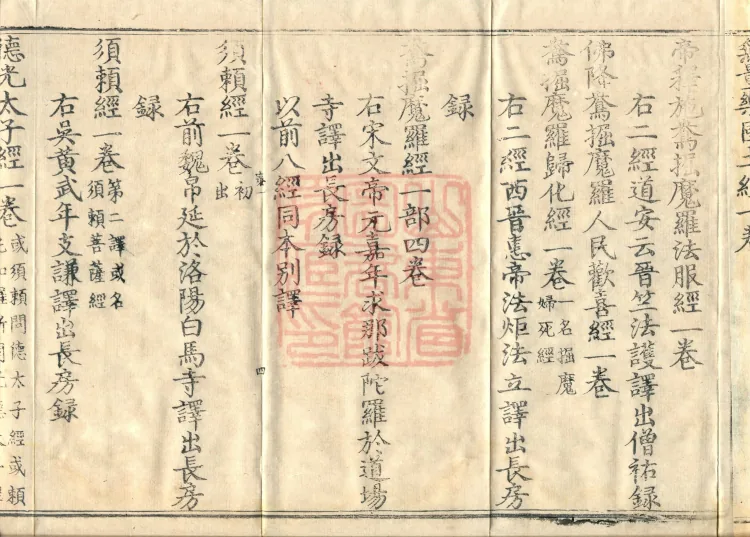 帝釋施鴦掘魔羅法服經一卷
右二經道安云晉竺法護譯出僧祐録
佛降鴦掘魔羅人民歡喜經一卷
鴦掘魔羅歸化經一卷一名掘魔婦死經
右二經西晉惠帝法炬法立譯出長房
録
鴦掘魔羅經一部四卷
右宋文帝元嘉年求那跋陀羅於道場
寺譯出長房録
以前八經同本別譯
四
須賴經一卷初出
右前魏帛延於洛陽白馬寺譯出長房
録
須賴經一卷第二譯或名須賴菩薩經
右吳黃武年支謙譯出長房録
德光太子經一卷或須賴問德太子經或賴